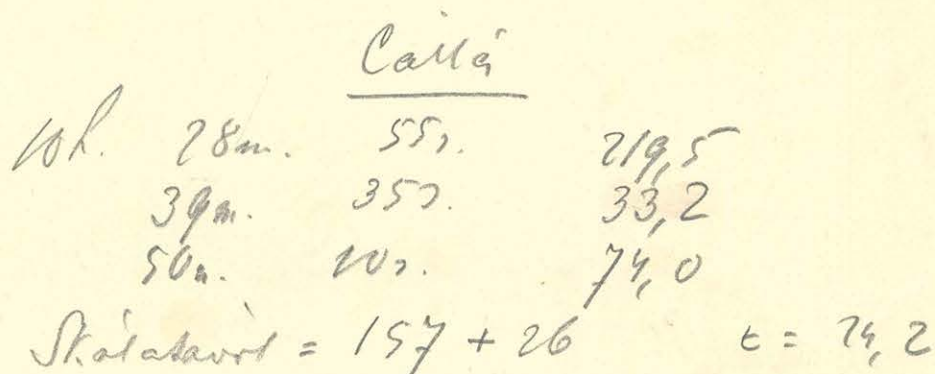 Callá
10h. 28m. 55s. 219,5
39m. 35s. 33,2
50m. 10s. 74,0
Skálatávol = 157 + 26 t = 24,2